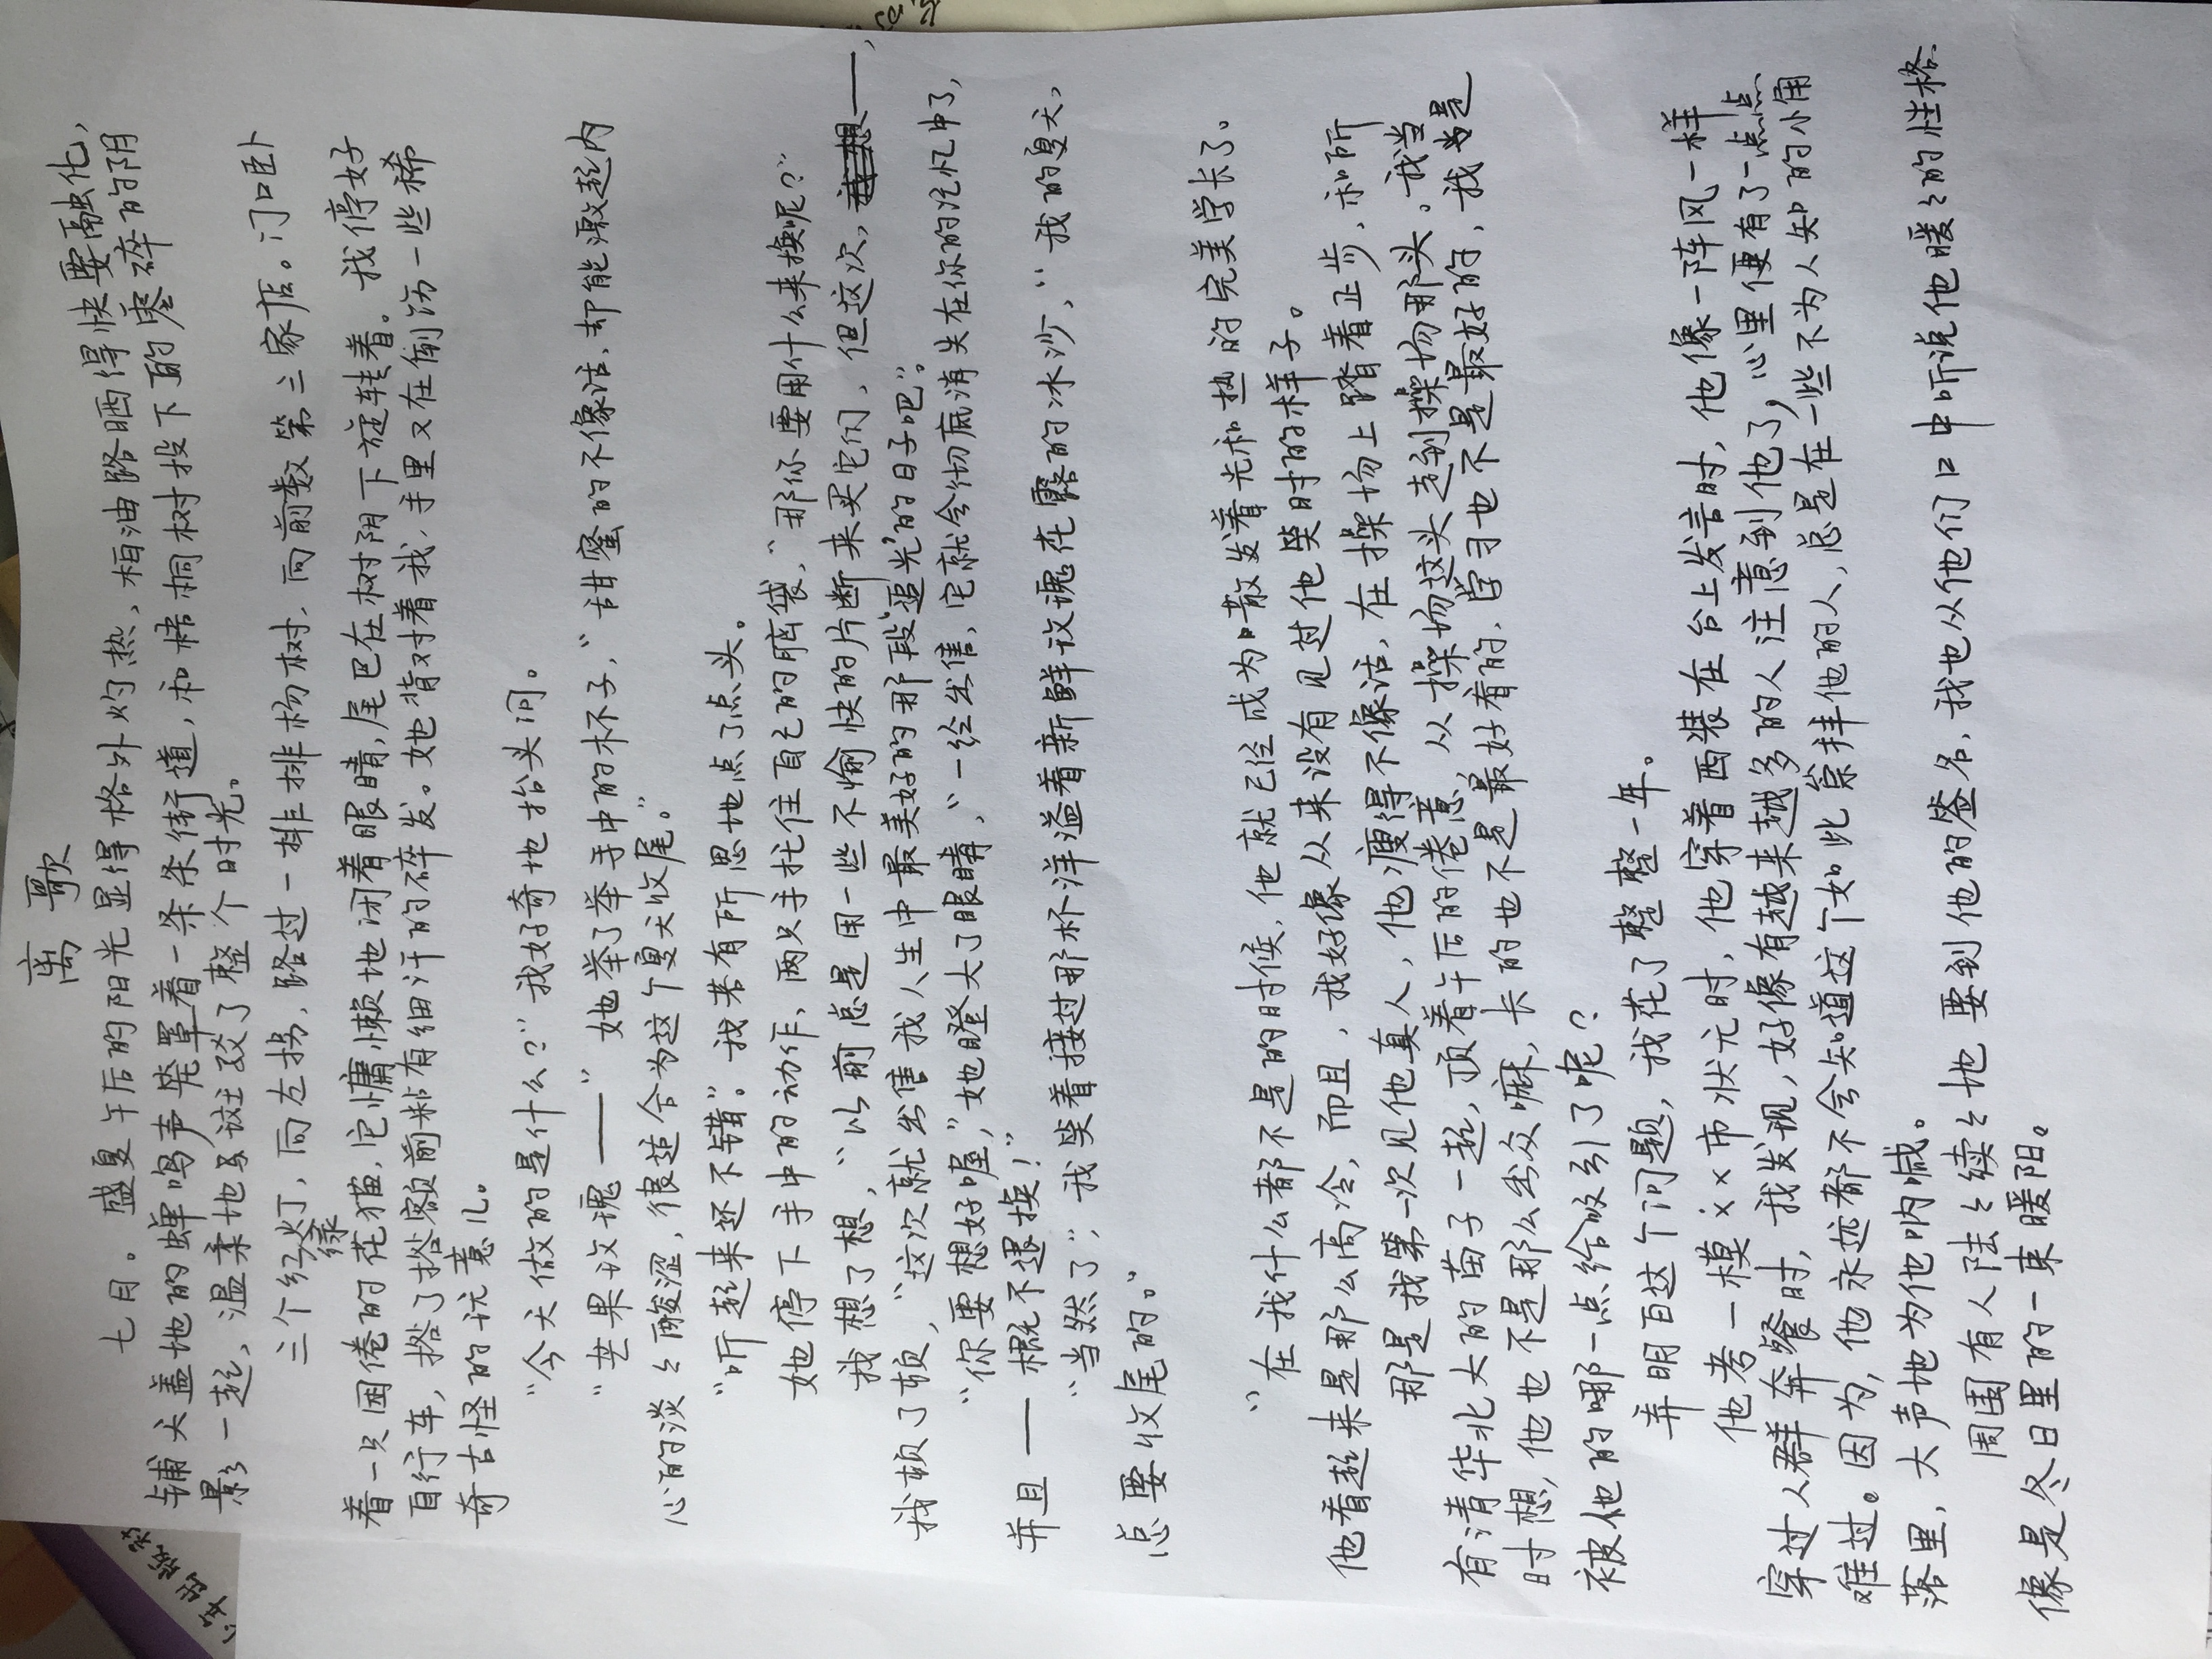 离歌
七月。盛夏午后的阳光显得格外灼热，柏油路晒得快要融化，
铺天盖地的蝉鸣声笼罩着一条条街道，和梧桐树投下的零碎的阴
影一起，温柔地斑驳了整个时光。
三个红绿灯，向左拐，路过一排排杨树，向前数第三家店。门口卧
着一只困倦的花猫，它慵懒地闭着眼睛，尾巴在树阴下旋转着。我停好
自行车，撩了撩额前粘有细汗的碎发。她背对着我，手里又在倒饬一些稀
奇古怪的玩意儿。
“今天做的是什么？”我好奇地抬头问。
“芒果玫瑰——”她举了举手中的杯子，“甜蜜的不像话，却能激起内
心的淡々酸涩，很适合为这个夏天收尾。”
“听起来还不错”。我若有所思地点了点头。
她停下手中的动作，两只手托住自己的脑袋，“那你要用什么来换呢？”
我想了想，“以前总是用一些不愉快的片断来买它们，但这次，——，
我顿了顿，“这次就出售我人生中最美好的那段‘追光’的日子吧”。
“你要想好喔，”她瞪大了眼睛，“一经出售，它就会彻底消失在你的记忆中了，
并且——概不退换！”
“当然了”，我笑着接过那杯洋溢着新鲜玫瑰花露的冰沙，“我的夏天，
总要收尾的。”
“在我什么都不是的时候，他就已经成为散发着光和热的完美学长了。
他看起来是那么高冷，而且，我好像从来没有见过他笑时的样子。
那是我第一次见他真人，他瘦得不像话，在操场上踏着正步，和所
有清华北大的苗子一起，顶着午后的倦意，从操场这头走到操场那头。我当
时想，他也不是那么出众嘛，长的也不是最好看的，学习也不是最好的，我当是
被他的哪一点给吸引了呢？
弄明白这个问题，我花了整整一年。
他考一模××市状元时，他穿着西装在台上发言时，他像一阵风一样
穿过人群奔餐时，我发现，好像有越来越多的人注意到他了，心里便有了一点点
难过。因为，他永远都不会知道这个如此崇拜他的人，总是在一些不为人知的小角
落里，大声地为他呐喊。
周围有人陆々续々地要到他的签名，我也从他们口中听说他暖々的性格
像是冬日里的一束暖阳。